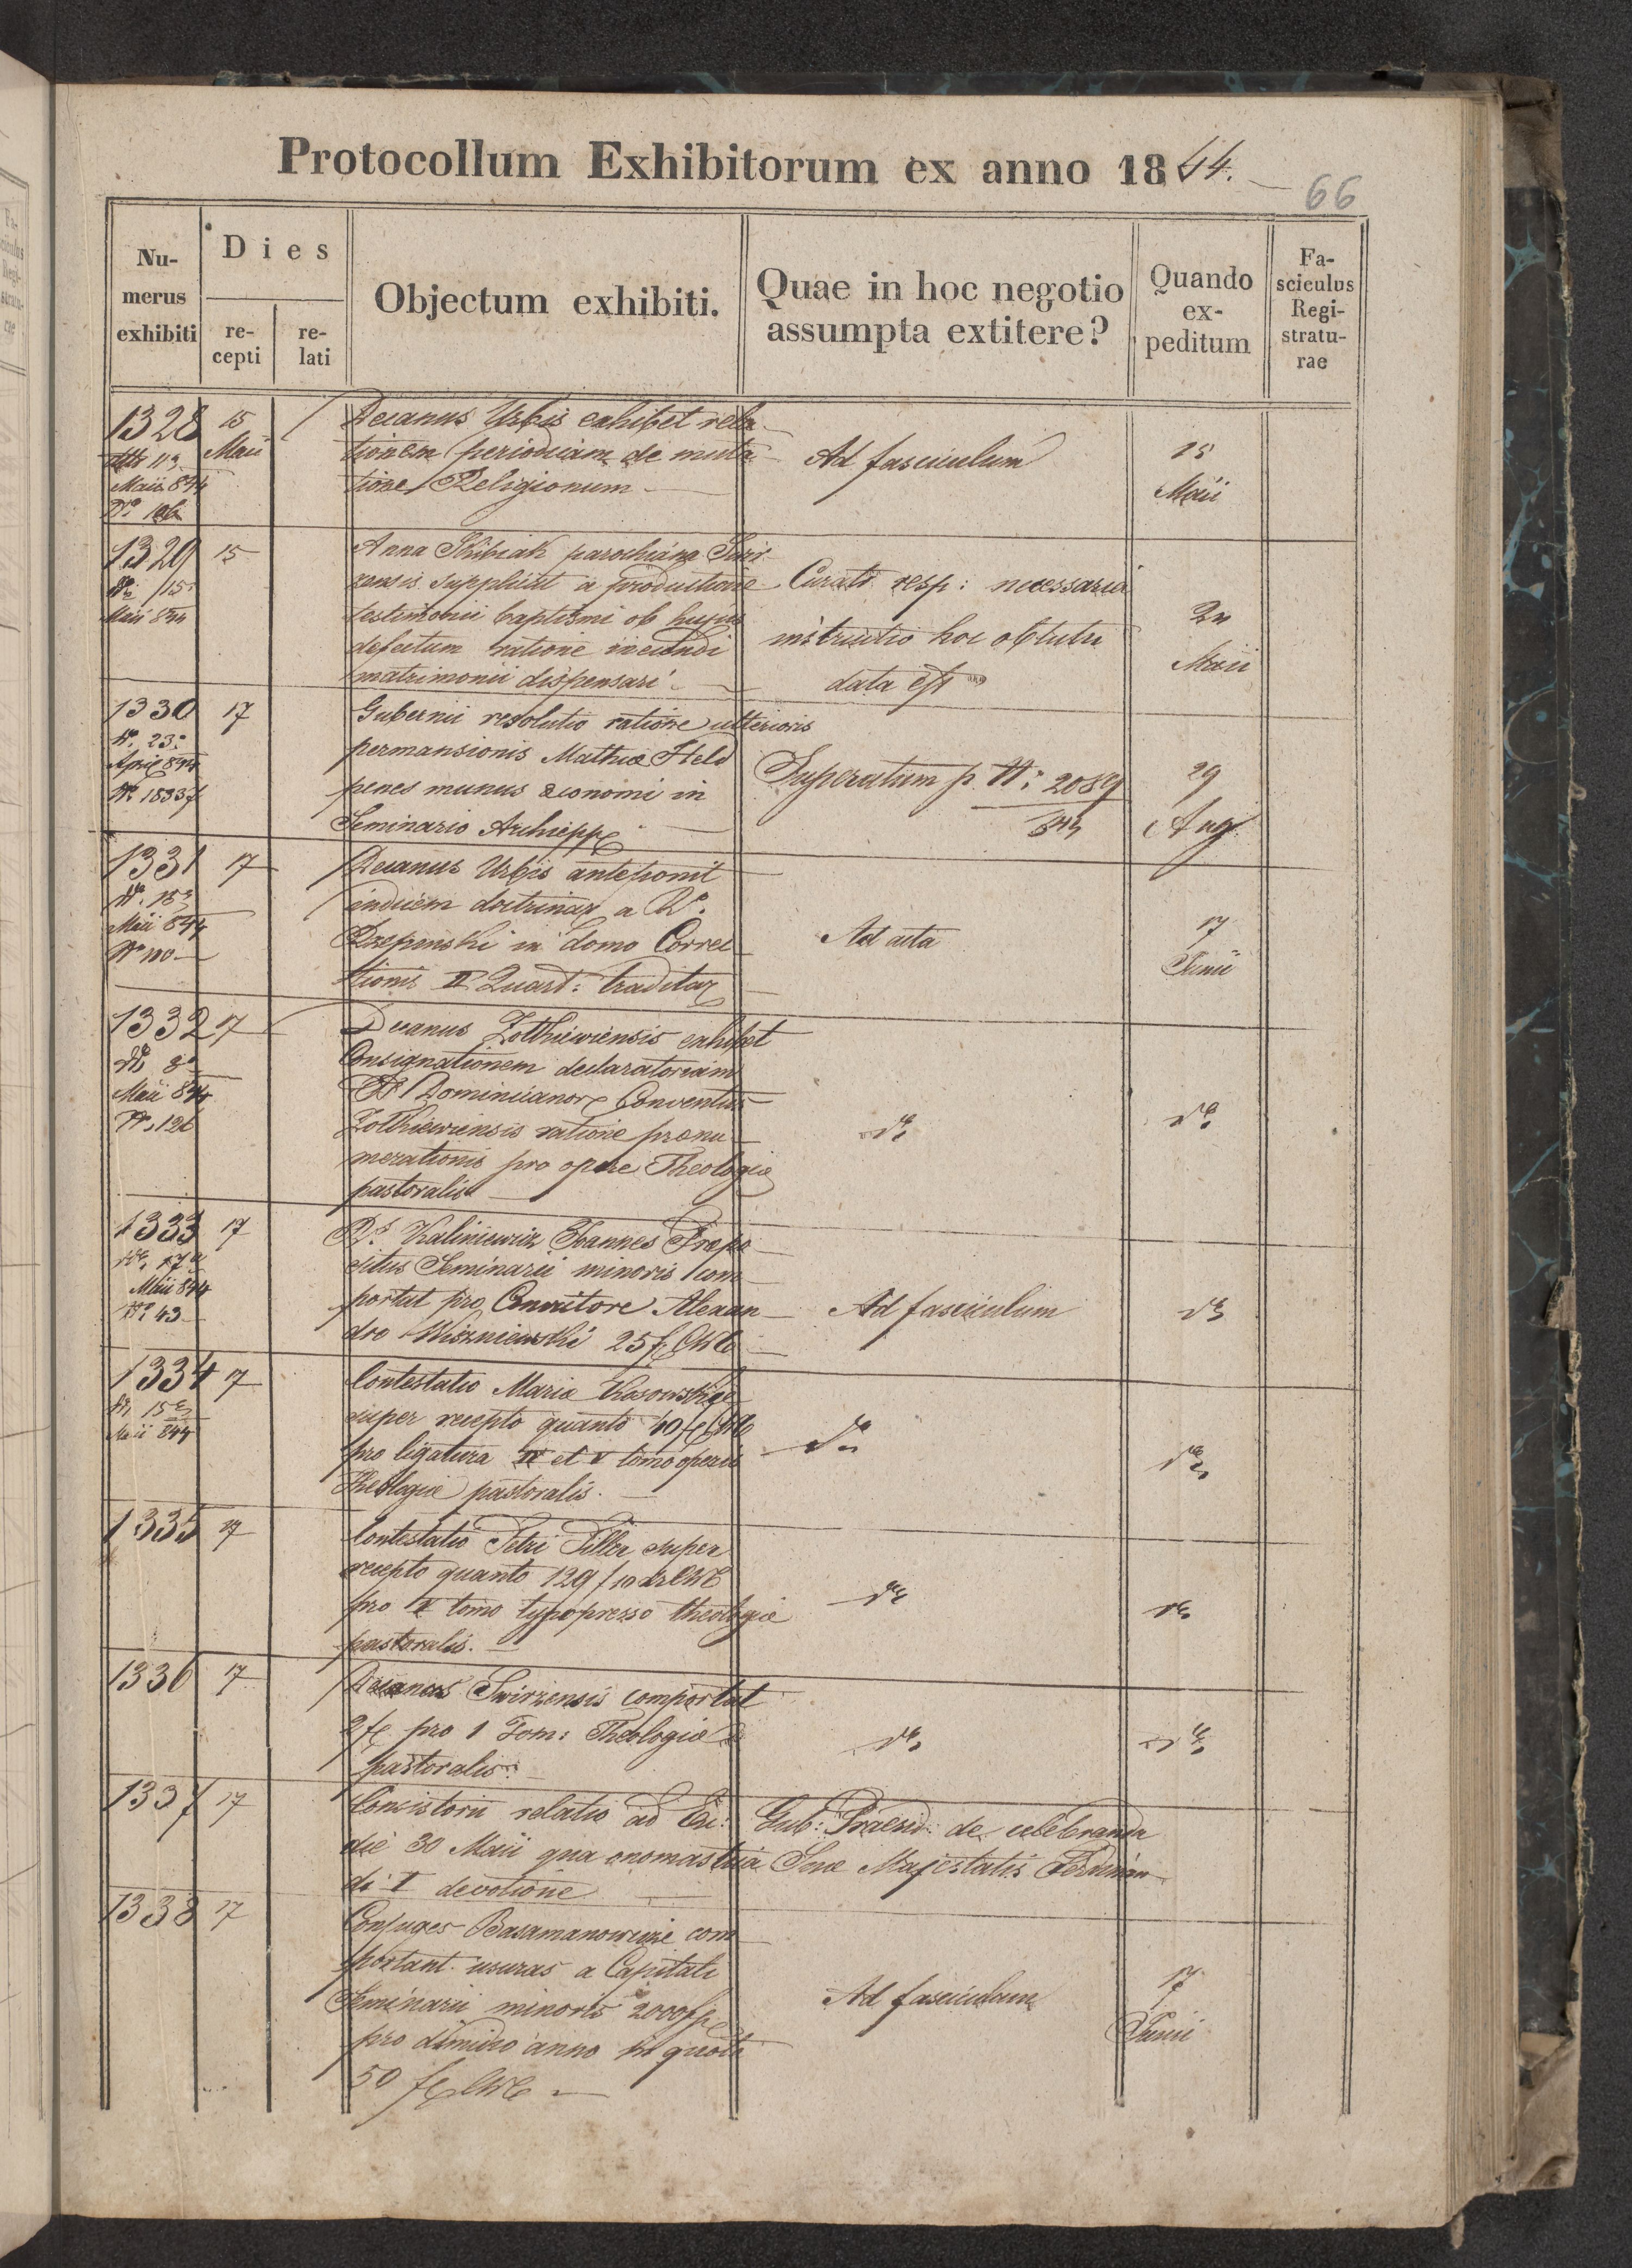 Protocollum Exhibitorum ex anno 1844.
66
Nu-
merus
exhibiti
Dies
re-
cepti
re-
lati
Objectum exhibiti.
Quae in hoc negotio
assumpta extitere?
Quando
ex-
peditum
Fa-
sciculus
Regi-
stratu-
rae
1328
Maii 844
15
Maii
Decanus Urbis exhibet rela
tionem periodicam de muta
tione Religionum
Ad fasciculum
15
Maii
1329
Maii 844
15
Anna Skibiak parochiana
supplicat a productione
testimonii baptismi ob hujus
defectum ratione ineundi
matrimonii dispensari
Curato resp: necessaria
instructio hoc
data est
Maii
1330
No. 23
April 844
17
Gubernii resolutio ratione ulterioris
permansionis Mathiæ Held
penes munus æconomi in
Seminario Archiepp
Superatum p. N: 2089
844
29
Aug
1331
No. 15
Maii 844
No 100
17
Decanus Urbis anteponit
indicem doctrinar a Rdo
Rzepinski in domo Correc
tionis II Quart: traditar
Ad acta
17
Junii
1332
Maii 844
No. 126
17
Decanus Zolkiewiensis exhibet
Consignationem declaratoriam
Dominicanor Conventus
Zolkiewiensis ratione prænu
merationis pro opere Theologiæ
pastoralis
do
do
1333
Maii 844
No 43
17
Rs. Kaliniewicz Joannes Præpo
situs Seminarii minoris com
portat pro Convitore Alexan
dro Wiszniewski 25 f CMC
Ad fasciculum
do
1334
Maii 844
17
Contestatio Mariæ Kosowskiæ
super recepto quanto 40 f CMC
pro ligatura IV et V tomo operis
Theologiæ pastoralis.
do
do
1335
17
Contestatio Petri Piller super
recepto quanto 129 f 10 xr CMC
pro V tomo typopresso theologiæ
pastoralis.
do
do
1336
17
Decanus Swirzensis comportat
2 f pro 1 Tom: Theologiæ
pastoralis.
do
do
1337
17
Consistorii relatio ad Exc: Gub: Præsid: de celebranda
die 30 Maii qua onomastica Suæ Majestatis Ferdinan
di I devotione
1338
17
Conjuges Basamanowicze com
portant usuras a Capitali
Seminarii minoris 2000 f
pro dimidio anno in quota
50 f CMC
Ad fasciculum
17
Junii